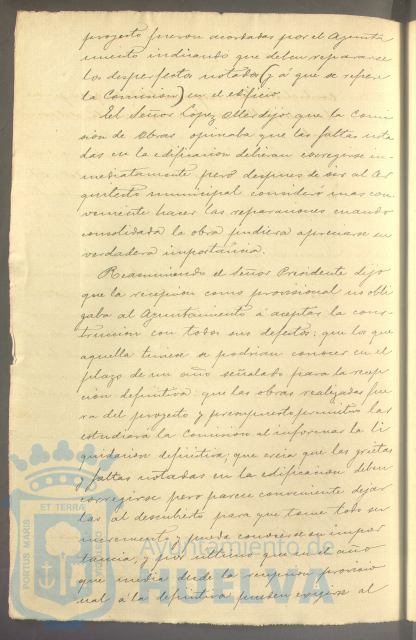 proyecto fueron acordadas por el Ayunta
miento indicando que deben repararse
los desperfectos notados (y á que se refiere
la Comision) en el edificio.
El Señor Lopez dijo: que la Comi
sion de Obras opinaba que las faltas nota
das en la edificacion debieran corregirse in-
mediatamente pero despues de oir al Ar
quitecto municipal consideró mas con-
veniente hacer las reparaciones cuando
consolidada la obra pudiera apreciarse su
verdadera importancia.
Reasumiendo el Señor Presidente dijo
que la recepcion como provisional no obli
gaba al Ayuntamiento á aceptar la cons-
truccion con todos sus defectos: que los que
aquella tuviese se podrian conocer en el
plazo de un año señalado para la recep
cion definitiva: que las obras realizadas fue
ra del proyecto y presupuesto primitivo las
estudiará la Comision al informar la li
quidacion definitiva; que creia que las grietas
y faltas notadas en la edificacion deben
corregirse pero parece conveniente dejar
las al descubierto para que tome todo su
incremento y pueda conocerse su impor
tancia, y por ultimo que en el año
que media desde la recepcion provisio
nal á la definitiva pueden exigirse al
PORTUS MARIS
ET TERRÆ
Ayuntamiento de
HUELVA